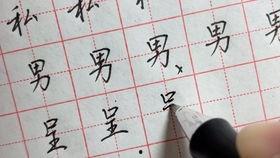 私 私
男 男 男 男 男
呈 呈